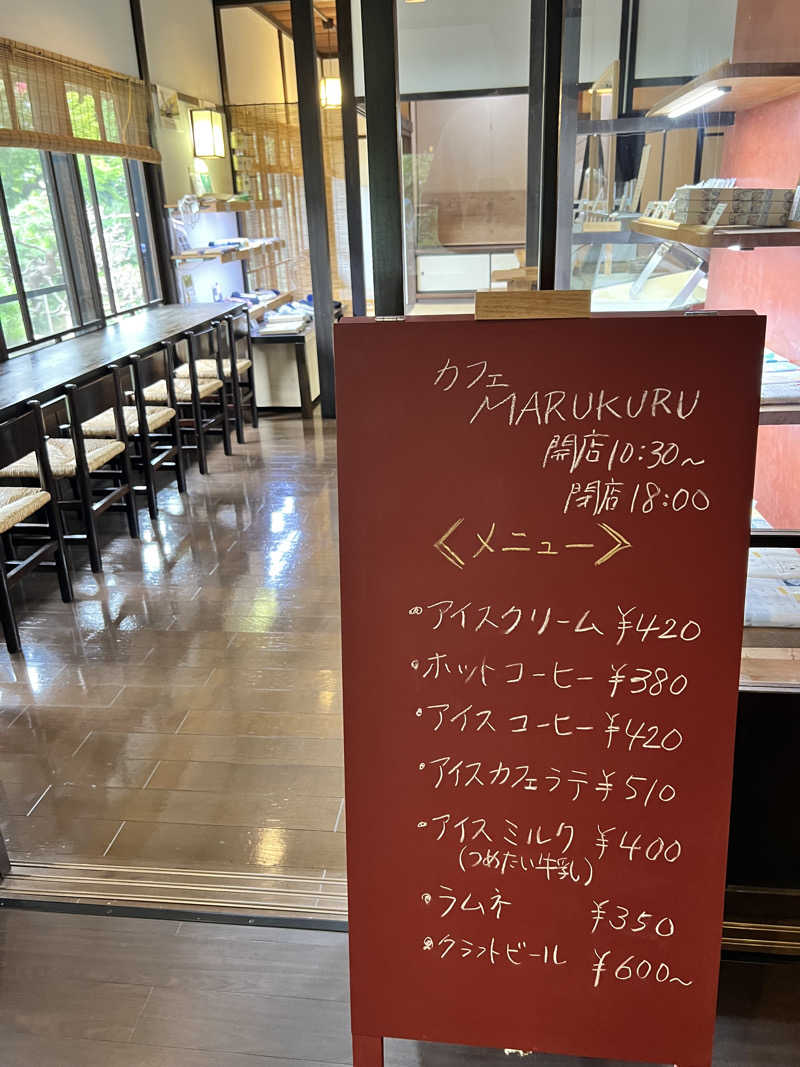 カフェ
MARUKURU
開店10:30~
閉店18:00
<メニュー>
・アイスクリーム ¥420
・ホットコーヒー ¥380
・アイスコーヒー ¥420
・アイスカフェラテ ¥510
・アイスミルク ¥400
(つめたい牛乳)
・ラムネ ¥350
・クラフトビール ¥600~